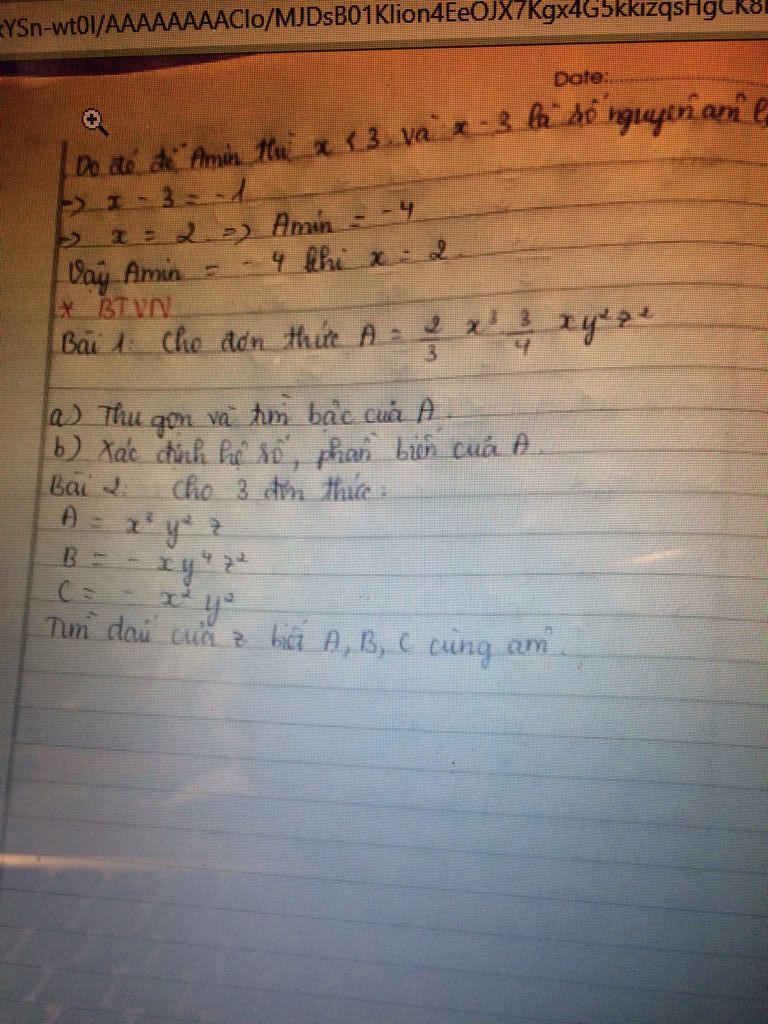 YSn-wt0I/AAAAAAAACIo/MJDsB01KIion4EeOJX7Kgx4G5kkizqsHgCK8
Date:
Do đó để Amin thì x < 3 và x - 3 là số nguyên âm
-> x - 3 = -1
-> x = 2 => Amin = -4
Vậy Amin = -4 khi x = 2.
* BTVN
Bài 1: Cho đơn thức A = 2/3 x³ 3/4 xy²z²
a) Thu gọn và tìm bậc của A.
b) Xác định hệ số, phần biến của A.
Bài 2: Cho 3 đơn thức:
A = x³ y² z
B = - xy⁴ z²
C = - x² y²
Tìm dấu của z biết A, B, C cùng âm.